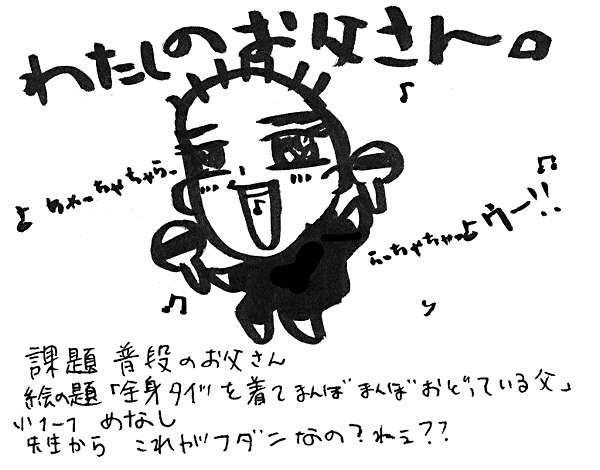 わたしのお父さん。
めちゃっちゃちゃらっ
らっちゃちゃっ
ウー!!
課題 普段のお父さん
絵の題「全身タイツを着てまんぼまんぼおどっている父」
めなし
先生から これがフダンなの?ねぇ??